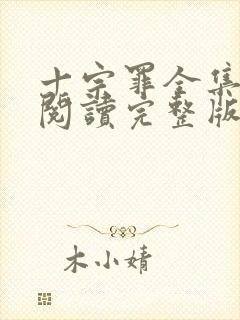 十宗罪全集
閱讀完整版
木小婧